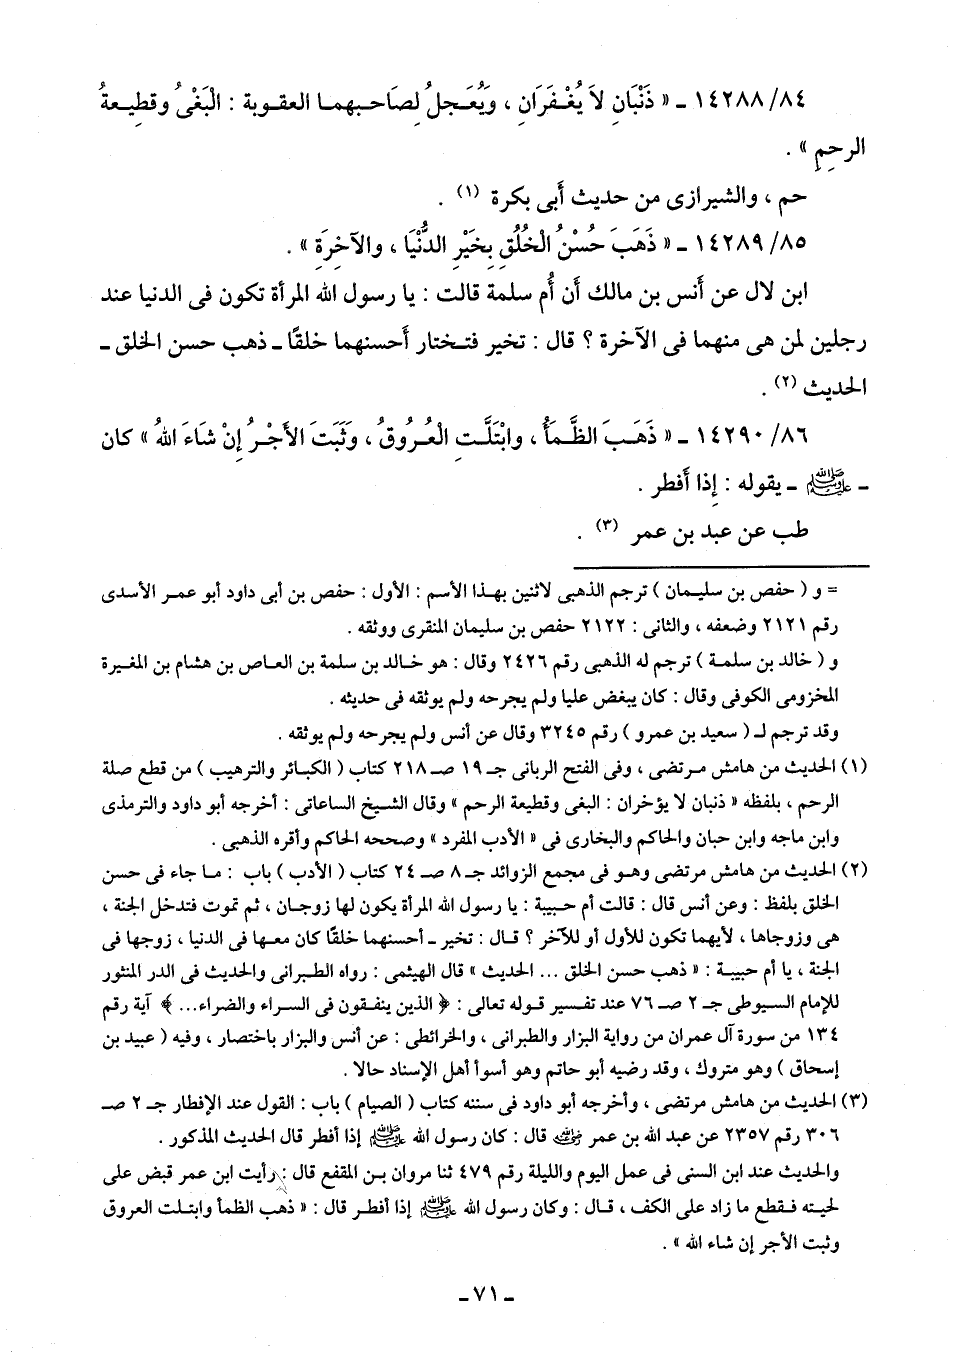 ١٤٢٨٨/٨٤ ـ « ذَنْبَانِ لاَ يُغْـفَرَانِ ، وَيُعَـجلُ لِصَاحـبهمـا العقـوبة : الْبَغْىُ وقطِيعةُ
الرحِمِ » .
حم ، والشيرازى من حديث أَبى بكرة (١) .
١٤٢٨٩/٨٥ ـ « ذَهَبَ حُسْنُ الْخُلُقِ بِخَيْرِ الدُّنْيَا ، والآخِرَةِ » .
ابن لال عن أَنس بن مالك أَن أُم سلمة قالت : يا رسول الله المرأة تكون فى الدنيا عند
رجلين لمن هى منهما فى الآخرة ؟ قال : تخير فتـختار أَحسنهما خلقًا ـ ذهب حسن الخلق ـ
الحديث (٢) .
١٤٢٩٠/٨٦ ـ « ذَهَـبَ الظَّـمَأُ ، وابْتَلَّـتِ الْعُـرُوقُ ، وَثَبَتَ الأَجْـرُ إِنْ شَاءَ اللهُ » كان
ـ ﷺ ـ يقوله : إِذا أَفطر .
طب عن عبد بن عمر (٣) .
= و ( حفص بن سليـمان ) ترجم الذهبى لاثنين بهـذا الأسم : الأول : حفص بن أبى داود أبو عمـر الأسدى
رقم ٢١٢١ وضعفه ، والثانى : ٢١٢٢ حفص بن سليمان المنقرى ووثقه .
و ( خالد بن سلمـة ) ترجم له الذهبى رقم ٢٤٢٦ وقال : هو خـالد بن سلمة بن العـاص بن هشام بن المغـيرة
المخزومى الكوفى وقال : كان يبغض عليا ولم يجرحه ولم يوثقه فى حديثه .
وقد ترجم لـ ( سعيد بن عمرو ) رقم ٣٢٤٥ وقال عن أنس ولم يجرحه ولم يوثقه .
(١) الحديث من هامش مـرتضى ، وفى الفتح الربانى جـ ١٩ صـ ٢١٨ كتاب ( الكبائر والترهيب ) من قطع صلة
الرحم ، بلفظه « ذنبان لا يؤخران : البغى وقطيعة الرحم » وقال الشيـخ الساعاتى : أخرجه أبو داود والترمذى
وابن ماجه وابن حبان والحاكم والبخارى فى « الأدب المفرد » وصححه الحاكم وأقره الذهبى .
(٢) الحديث من هامش مرتضى وهـو فى مجمع الزوائد جـ ٨ صـ ٢٤ كتاب ( الأدب ) باب : مـا جاء فى حسن
الخلق بلفظ : وعن أنس قال : قالت أم حبيبة : يا رسول الله المرأة يكون لها زوجـان ، ثم تموت فتدخل الجنة ،
هى وزوجاها ، لأيهما تكون للأول أو للآخر ؟ قـال : تخير ـ أحسنهما خلقًا كان معـها فى الدنيا ، زوجها فى
الجنة ، يا أم حبيبـة : « ذهب حسن الخلق ... الحديث » قال الهيثمى : رواه الطبرانى والحديث فى الدر المنثور
للإمام السيوطى جـ ٢ صـ ٧٦ عند تفسير قـوله تعالى : ﴿ الذين ينفـقون فى السـراء والضراء... ﴾ آية رقم
١٣٤ من سورة آل عمران من رواية البزار والطبرانى ، والخرائطى : عن أنس والبزار باختصار ، وفيه ( عبيد بن
إسحاق ) وهو متروك ، وقد رضيه أبو حاتم وهو أسوأ أهل الإسناد حالا .
(٣) الحديث من هامش مرتضى ، وأخرجه أبو داود فى سننه كتاب ( الصيام ) باب : القول عند الإفطار جـ ٢ صـ
٣٠٦ رقم ٢٣٥٧ عن عبد الله بن عمر رضي الله عنه قال : كان رسول الله ﷺ إذا أفطر قال الحديث المذكور .
والحديث عند ابن السنى فى عمل اليوم والليلة رقم ٤٧٩ ثنا مروان بـن المقفع قال : رأيت ابن عمر قبض على
لحيته فـقطع ما زاد على الكف ، قـال : وكان رسول الله ﷺ إذا أفطـر قال : « ذهب الظمأ وابتـلت العروق
وثبت الأجر إن شاء الله » .
ـ ٧١ ـ